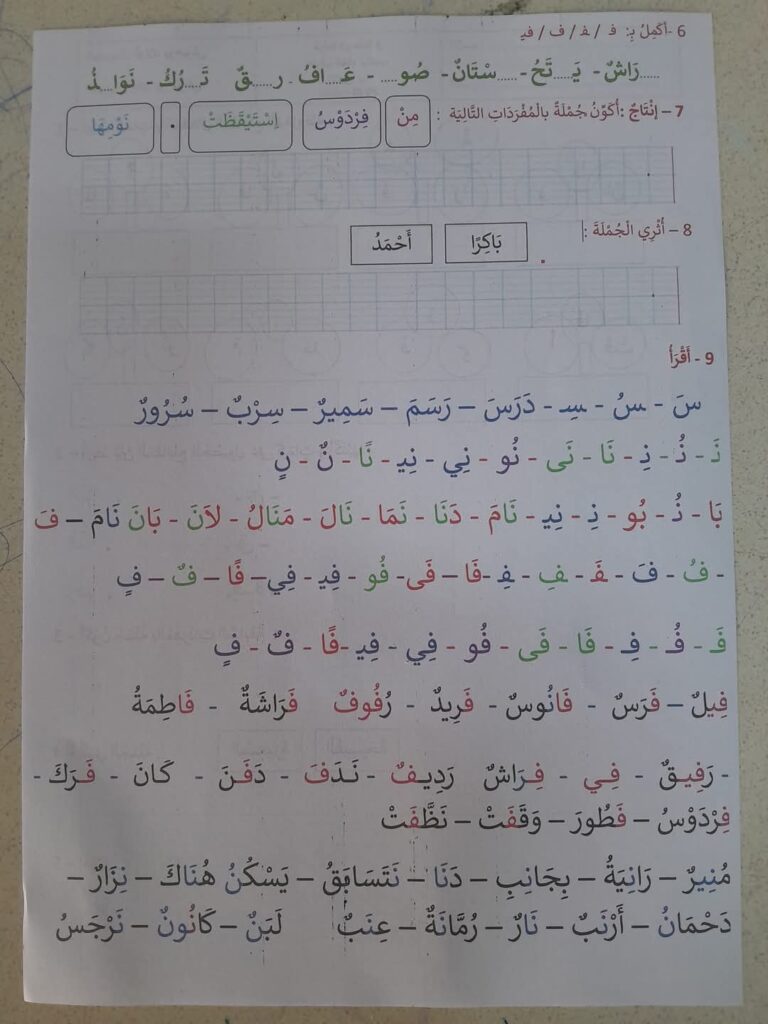 6 -أكمل بـ: فـ / ـفـ / ف / فيـ
.....رَاشٌ - يَـ....تَحُ - .....سْتَانٌ - صُو.... - عَـا....فُ - ر....قٌ تَـ....رُكُ - نَوَا....ذُ
7 – إنْتَاجٌ :أُكَوِّنُ جُمْلَةً بِالْمُفْرَدَاتِ التَّالِيَة : مِنْ فِرْدَوْسُ اِسْتَيْقَظَتْ . نَوْمِهَا
8 – أُثْرِي الْجُمْلَةَ : بَاكِرًا أَحْمَدُ .
9 - أَقْرَأُ
سَ - ـسُ - سِـ - دَرَسَ – رَسَمَ – سَمِيرٌ – سِرْبٌ – سُرُورٌ
نَـ - نُـ - نِـ - نَا - نَى - نُو - نِي - نِيـ - نًا - نٌ - نٍ
بَا - نُـ - بُو - نِـ - نِيـ - نَامَ - دَنَا - نَمَا - نَالَ - مَنَالُ - لاَنَ - بَانَ نَامَ – فَ
- فُ - فَ - ـفَـ - ـفِـ - فِـ -فَا – فَى- فُو - فِيـ - فِي– فًا – فٌ – فٍ
فَـ - فُـ - فِـ - فَا - فَى - فُو - فِي - فِيـ -فًا - فٌ - فٍ
فِيلٌ – فَرَسٌ - فَانُوسٌ - فَرِيدٌ - رُفُوفٌ فَرَاشَةٌ - فَاطِمَةُ
- رَفِيقٌ - فِي - فِرَاشٌ رَدِيـفٌ - نَـدَفَ - دَفَـنَ - كَـانَ - فَـرَكَ -
فِرْدَوْسُ – فَطُورَ – وَقَفَتْ – نَظَّفَتْ
مُنِيرٌ – رَانِيَةُ – بِجَانِبِ – دَنَا – نَتَسَابَقُ – يَسْكُنُ هُنَاكَ – نِزَارٌ –
دَحْمَانُ – أَرْنَبٌ – نَارٌ – رُمَّانَةٌ – عِنَبٌ لَبَنٌ – كَانُونٌ – نَرْجَسُ